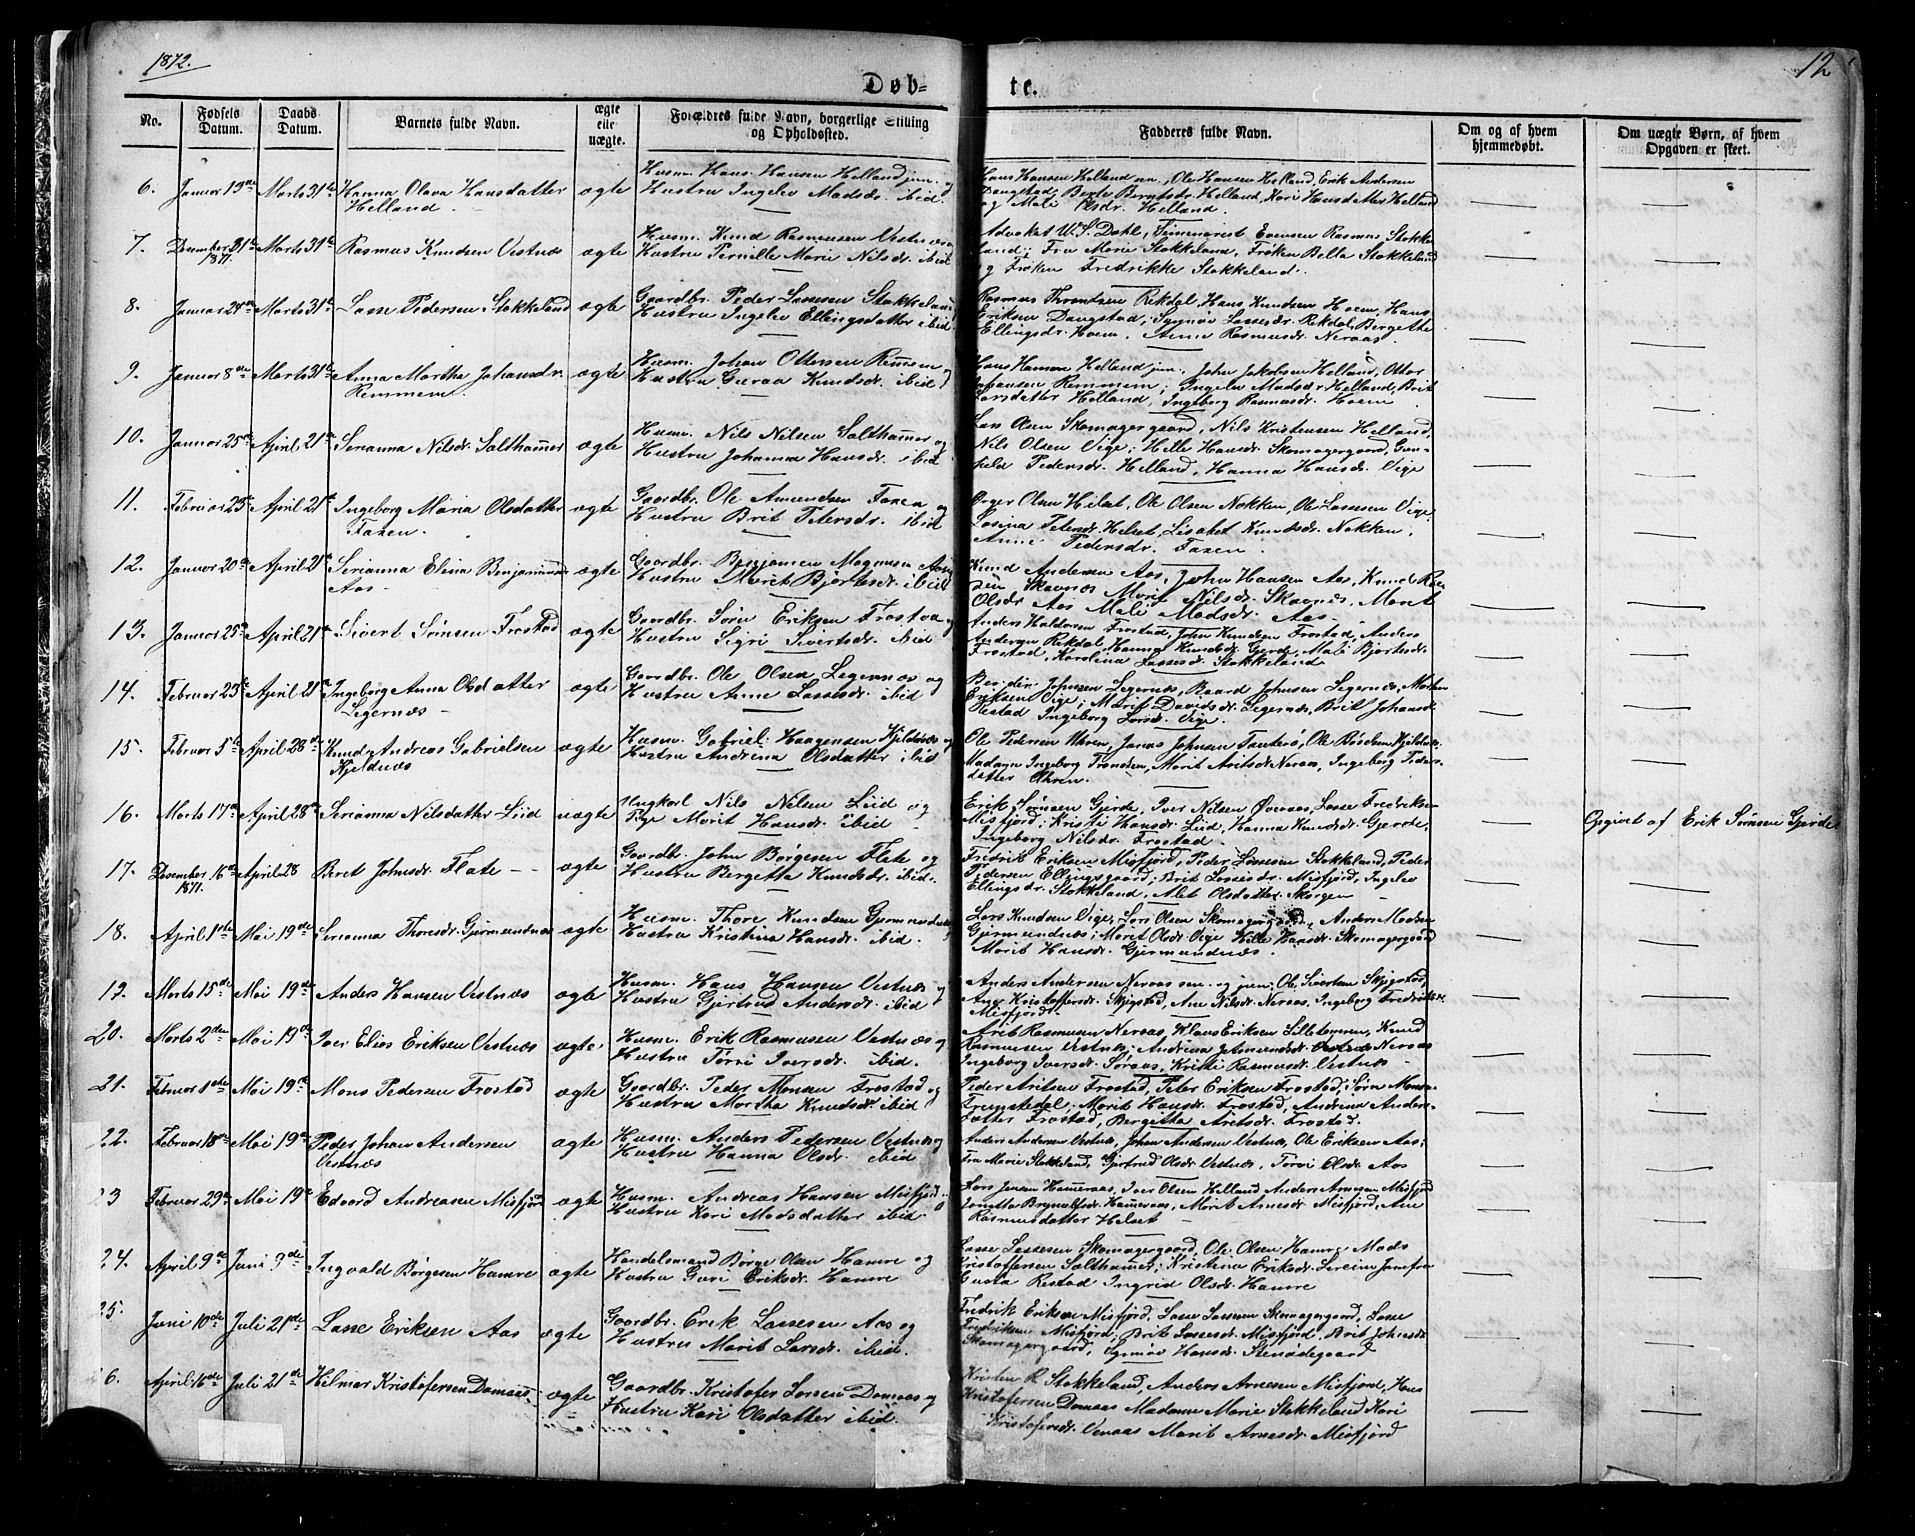 1872.
12
Døb-
te.
No.
Fødsels Datum.
Daabs Datum.
Barnets fulde Navn.
ægte eller uægte.
Forældres fulde Navn, borgerlige Stilling og Opholdssted.
Fadderes fulde Navn.
Om og af hvem hjemmedøbt.
Om uægte Børn, af hvem Opgaven er skeet.
6. Januar 19de Marts 31te Hanna Olava Hansdatter Helland ægte
Husm. Hans Hansen Helland jun. og
Hustru Ingelev Madsdr. ibid
Hans Hansen Helland Ole Hansen Helland, Erik Andersen
Daugstad, Berte Berntsdr. Helland, Kari Hansdatter Helland
og Mali Olsdr. Helland.
7. December 31te 1871. Marts 31te Rasmus Knudsen Vestnæs ægte
Husm. Knud Rasmussen Vestnæs og
Hustru Pernille Marie Nilsdr. ibid
Advokat W. S. Dahl, Rasmus Stokke-
land; Fru Marie Stokkeland, Frøken Bella Stokkeland
og Frøken Fredrikke Stokkeland.
8. Januar 24de Marts 31te Lasse Pedersen Stokkeland ægte
Gaardbr. Peder Lassesen Stokkeland
Hustru Ingelev Ellingsdatter ibid
Rasmus Throndsen Rekdal, Hans Knudsen Hoem, Hans
Eriksen Daugstad; Synnøv Lassesdr. Rekdal, Bergethe
Ellingsdr. Hoem, Anne Rasmusdr. Neraas.
9. Januar 8de Marts 31te Anna Martha Johansdr. Remmem ægte
Husm. Johan Ottersen Remmem og
Hustru Guraa Knudsdr. ibid
Hans Hansen Helland jun. John Jakobsen Helland, Otter
Johansen Remmem; Ingelev Madsdr Helland, Brit
Larsdatter Helland, Ingeborg Rasmusdr. Hoem
10. Januar 25de April 21de Serianna Nilsdr. Salthamer ægte
Husm. Nils Nilsen Salthamer og
Hustru Johanna Hansdr. ibid
Lars Olsen Skomagergaard, Nils Kristensen Helland,
Nils Olsen Vige; Helle Hansdr. Skomagergaard, Gun-
hild Pedersdr. Helland, Hanna Hansdr. Vige
11. Februar 23de April 21de Ingeborg Maria Olsdatter Faxen. ægte
Gaardbr. Ole Amundsen Faxen og
Hustru Brit Petersdr. ibid
Olsen Helset, Ole Olsen Nakken, Ole Lassesen Vige,
Lasina Petersdr. Helset, Lisabet Knudsdr. Nakken,
Anne Pedersdr. Faxen.
12. Januar 20de April 21de Serianna Elena Aas ægte
Gaardbr. Benjamen Magnusen Aas
Hustru Marit Bjørtesdr. ibid
Knud Andersen Aas, John Hansen Aas, Knud
Skavnæs Marit Nilsdr. Skavnæs, Marit
Olsdr Aas Mali Madsdr. Aas.
13. Januar 25de April 21de Sivert Sørnsen Frostad ægte
Gaardbr. Sørn Eriksen Frostad og
Hustru Sigri Sivertsdr. ibid
Anders Haldorsen Frostad, John Knudsen Frostad, Anders
Andersen Rekdal, Hanna Knudsdr. Gjerde, Mali Bjørtesdr.
Frostad, Karolina Lassesdr. Stokkeland
14. Februar 23de April 21de Ingeborg Anna Olsdatter Legernæs ægte
Gaardbr. Ole Olsen Legernæs og
Hustru Anne Lassesdr. ibid
Johnsen Legernæs, Baard Johnsen Legernæs, Morten
Eriksen Vige; Marit Davidsdr. Legernæs, Brit Johansdr.
Restad Ingeborg Larsdr. Vige.
15. Februar 5te April 28de Knud Andreas Gabrielsen Kjeldnæs ægte
Husm. Gabriel Haagensen Kjeldnæs og
Hustru Andrina Olsdatter ibid
Ole Pedersen Uhren, Jonas Johnsen Tautrø, Ole Kjeldnæs,
Madam Ingeborg Trondsen, Marit Aritsdr. Neraas, Ingeborg Peders-
datter Uhren.
16. Marts 17de April 28de Serianna Nilsdatter Liid uægte
Ungkarl Nils Nilsen Liid og
Pige Marit Hansdr. ibid
Erik Sørnsen Gjerde, Iver Nilsen Øveraas, Lasse Fredriksen
Misfjord; Kristi Hansdr. Liid, Hanna Knudsdr. Gjerde,
Ingeborg Nilsdr. Frostad.
Opgivet af Erik Sørnsen Gjerde
17. Desember 16de 1871. April 28 Beret Johnsdr. Flate ægte
Gaardbr. John Børgesen Flate og
Hustru Bergetta Knudsdr. ibid.
Fredrik Eriksen Misfjord, Peder Lassesen Stokkeland, Peder
Pedersen Ellingsgaard; Brit Lassesdr. Misfjord, Ingelev
Ellingsdr. Stokkeland, Alet Olsdatter Skorgen
18. April 1ste Mai 19de Serianna Thoresdr. Gjermundnæs ægte
Husm. Thore Knudsen Gjermundnæs
Hustru Kristina Hansdr. ibid.
Lars Knudsen Vige, Lars Olsen Skomagergaard, Anders Madsen
Gjermundnæs; Marit Olsdr. Vige Helle Hansdr. Skomagergaard
Marit Hansdr. Gjermundnæs.
19. Marts 15de Mai 19de Anders Hansen Vestnæs ægte
Husm. Hans Hansen Vestnæs og
Hustru Gjertrud Andersdr. ibid
Anders Andersen Neraas sen. og jun; Ole Sivertsen Skjegstad,
Ane Kristoffersdr. Skjegstad, Ane Nilsdr. Neraas, Ingeborg Fredriksdr.
Misfjord.
20. Marts 2den Mai 19de Iver Elias Eriksen Vestnæs ægte
Husm. Erik Rasmussen Vestnæs og
Hustru Torri Iversdr. ibid.
Arit Rasmussen Neraas, Klaus Eriksen Knud
Rasmussen Vestnæs; Andrina Amundsdr. Neraas
Ingeborg Iversdr. Søraas, Kristi Rasmusdr. Vestnæs
21. Februar 1ste Mai 19de Mons Pedersen Frostad ægte
Gaardbr. Peder Monsen Frostad og
Hustru Martha Knudsdr. ibid
Peder Aritsen Frostad, Peter Eriksen Frostad, Sørn Mons-
Tremstedal; Marit Hansdr. Frostad, Andrina Anders-
datter Frostad, Bergetha Aretsdr. Frostad.
22. Februar 18de Mai 19de Peder Johan Andersen Vestnæs ægte
Husm. Anders Pedersen Vestnæs og
Hustru Hanna Olsdr. ibid
Anders Andersen Vestnæs, Johan Andersen Vestnæs, Ole Eriksen Aas;
Fru Marie Stokkeland, Gjertrud Olsdr. Vestnæs, Torri Olsdr. Aas
23 Februar 29de Mai 19de Edvard Andreasen Misfjord ægte
Husm. Andreas Hansen Misfjord
Hustru Kari Madsdatter ibid.
Lars Jensen Hameraas, Iver Olsen Helland Anders Arnesen Misfjord
Jonetta Brynulfsdr. Hameraas, Marit Arnesdr. Misfjord, Ane
Rasmusdatter Helset
24. April 9de Juni 9de Ingvald Børgesen Hamre ægte
Handelsmand Børge Olsen Hamre og
Hustru Guri Eriksdr. Hamre
Lasse Lassesen Skomagergaard, Ole Olsen Hamre Mads
Kristoffersen Salthamer; Kristina Eriksdr. Sereim Jomfru
Restad Ingrid Olsdr. Hamre
25. Juni 10de Juli 21de Lasse Eriksen Aas ægte
Gaardbr. Erik Lassesen Aas og
Hustru Marit Larsdr. ibid.
Fredrik Eriksen Misfjord, Lasse Larssen Skomagergaard, Lasse
Fredriksen Misfjord; Brit Lassesdr. Misfjord, Brit Johnsdr
Skomagergaard, Synnøv Hansdr. Stenødegaard
6. April 16de Juli 21de Hilmar Kristofersen Damaas ægte
Gaardbr. Kristofer Larsen Damaas og
Hustru Kari Olsdatter ibid.
Kristen R Stokkeland, Anders Arnesen Misfjord, Hans
Kristofersen Damaas Madame Marie Stokkeland Kari
Kristofersdr. Venaas Marit Arnesdr. Misfjord